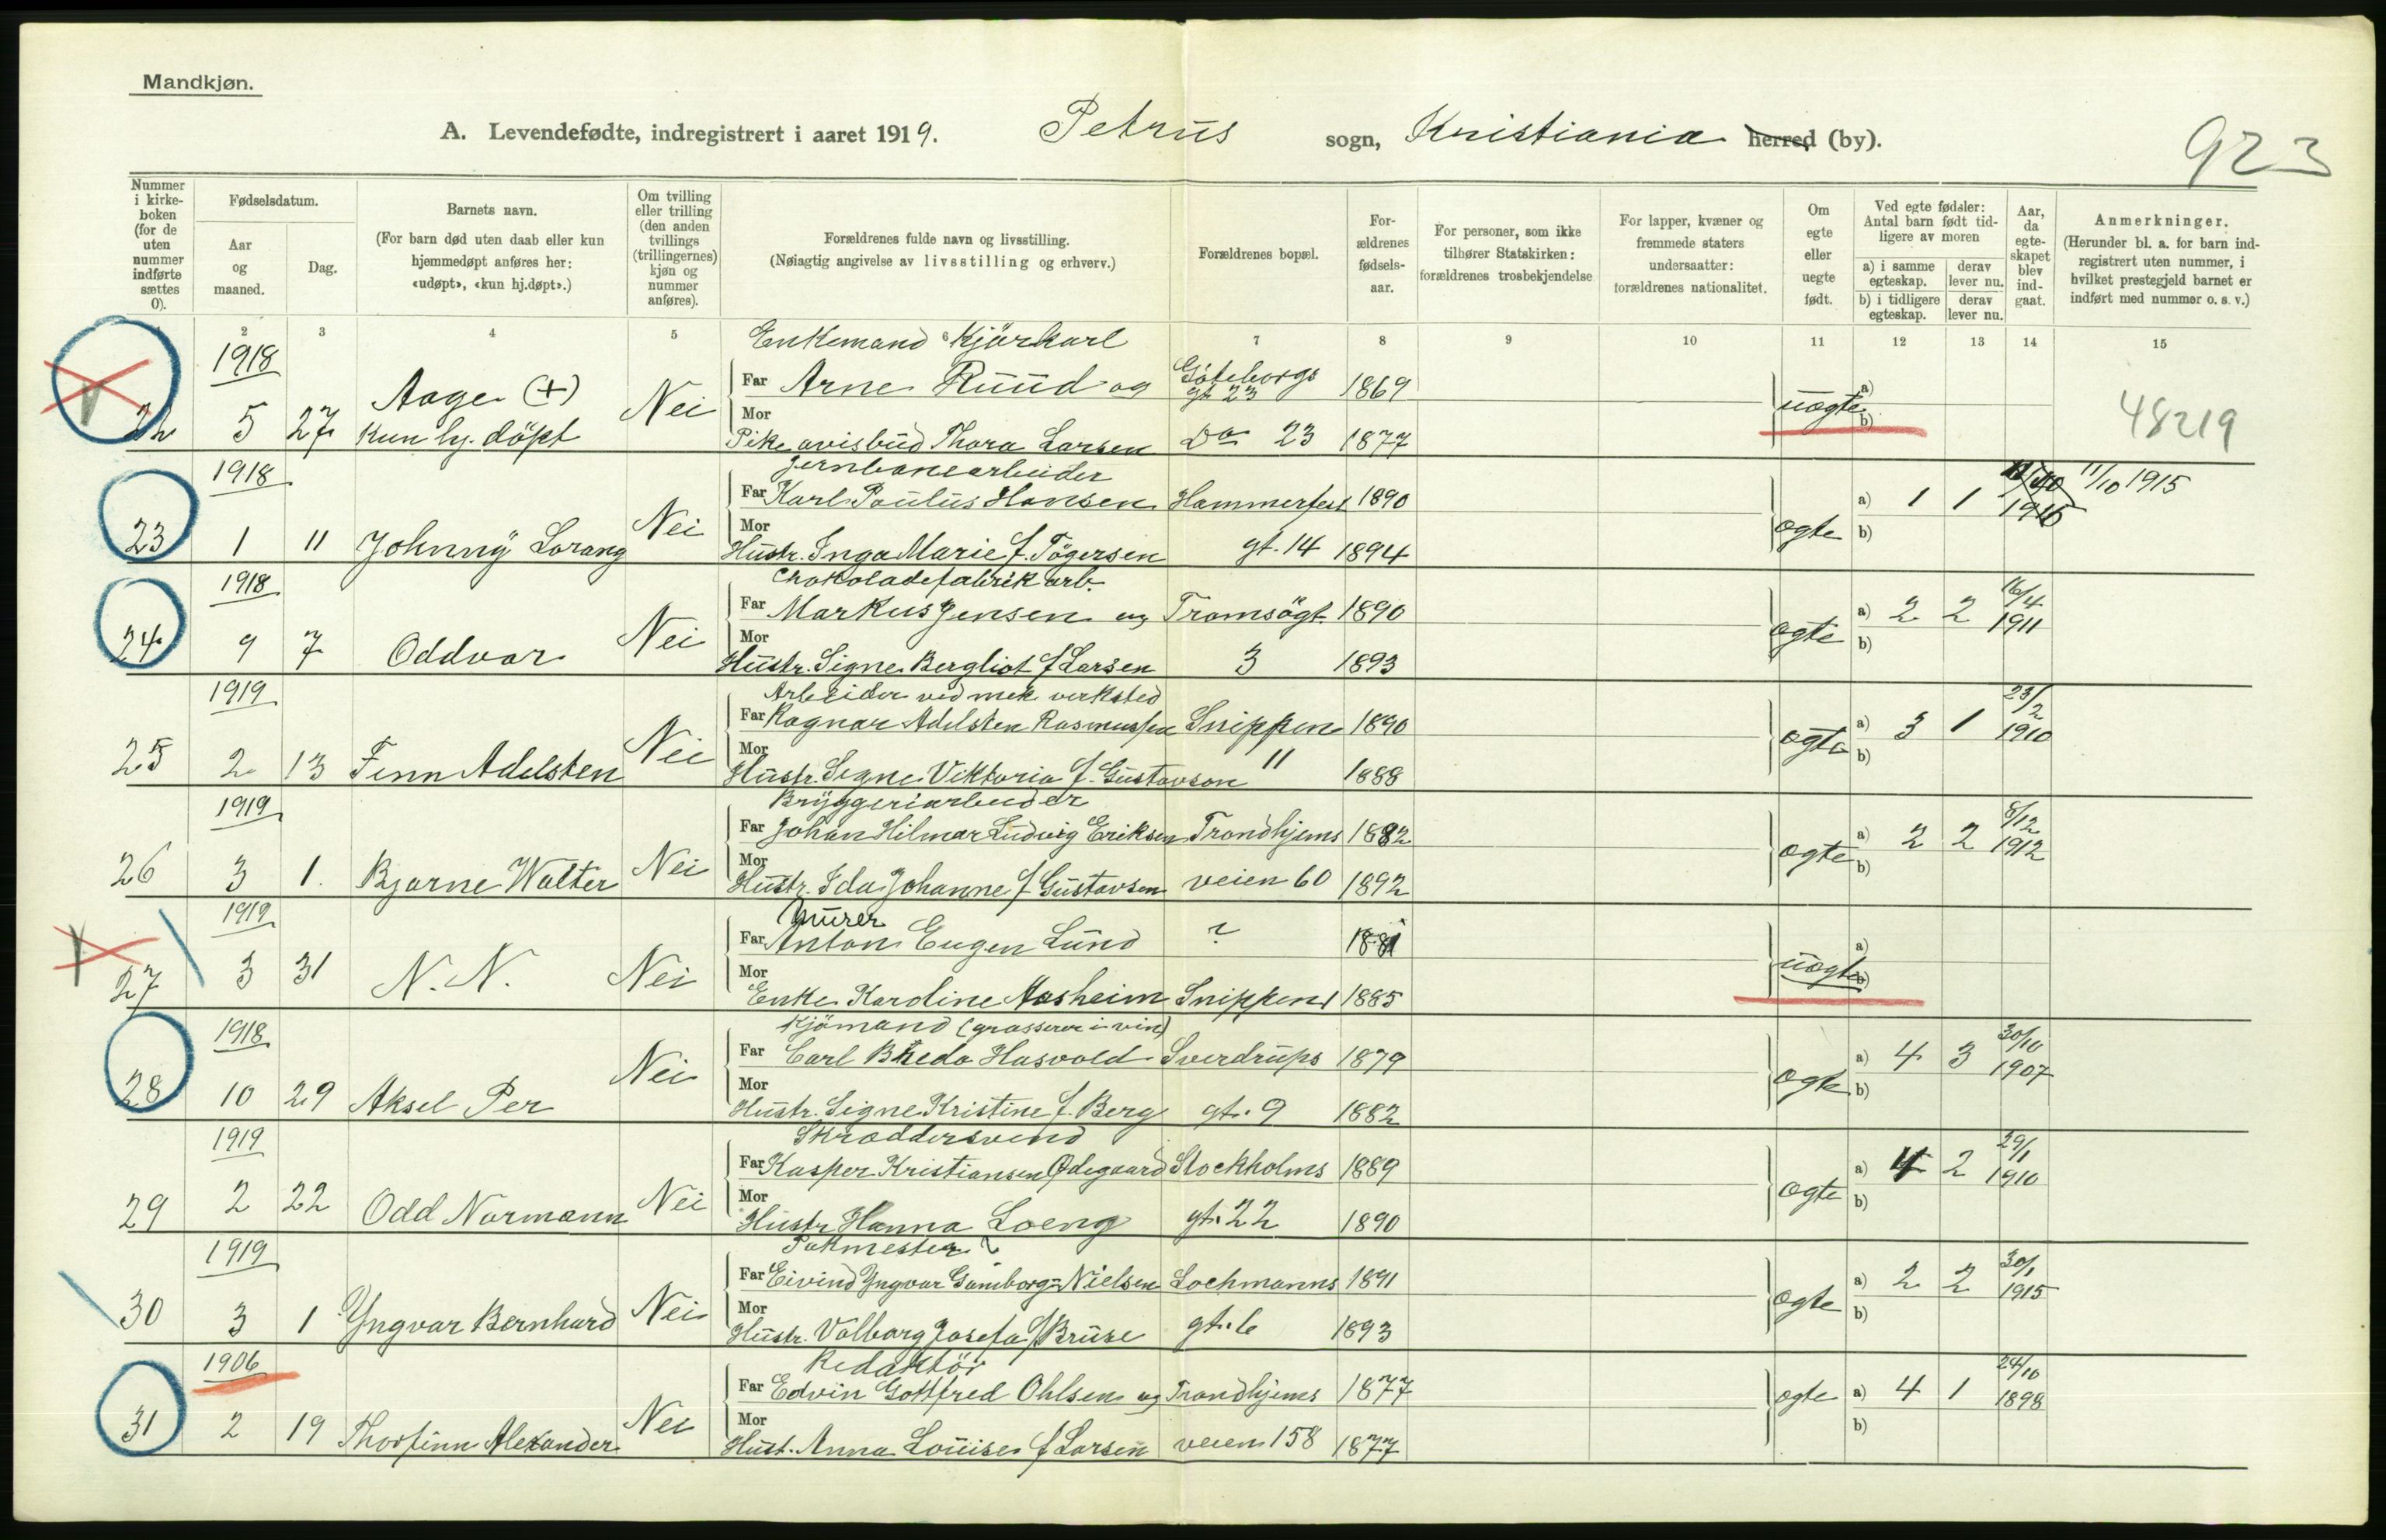 Mandkjøn.
A. Levendefødte, indregistrert i aaret 1919. Petrus sogn, Kristiania herred (by).
923
Nummer i kirke-boken (for de uten nummer indførte sættes 0).
Fødselsdatum.
Aar og maaned.
Dag.
Barnets navn.
(For barn død uten daab eller kun hjemmedøpt anføres her: «udøpt», «kun hj.døpt».)
Om tvilling eller trilling (den anden tvillings (trillingernes) kjøn og nummer anføres).
Forældrenes fulde navn og livsstilling.
(Nøiagtig angivelse av livsstilling og erhverv.)
Forældrenes bopæl.
For-ældrenes fødsels-aar.
For personer, som ikke tilhører Statskirken: forældrenes trosbekjendelse
For lapper, kvæner og fremmede staters undersaatter: forældrenes nationalitet.
Om egte eller uegte født.
Ved egte fødsler: Antal barn født tid-ligere av moren
a) i samme egteskap.
derav lever nu.
b) i tidligere egteskap.
derav lever nu.
Aar, da egte-skapet blev ind-gaat.
Anmerkninger.
(Herunder bl. a. for barn ind-registrert uten nummer, i hvilket prestegjeld barnet er indført med nummer o. s. v.)
2 3 4 5 6 7 8 9 10 11 12 13 14 15
Enkemand Kjörkarl
1918
Far Arne Ruud og Göteborgs gt 23 1869
22 5 27 Aage (+) Kun hj. döpt Nei uegte a) b) 48219
Mor Pike avisbud Thora Larsen Do 23 1877
1918 Jernbanearbeider
Far Karl Paulus Hansen Hammerfest 1890 a) 1 1 11/10 1915
23 1 11 Johnny Lorang Nei egte b)
Mor Hustr. Inga Marie f. Tögersen gt. 14 1894
1918 Chokoladefabrik arb.
Far Markus Jensen og Tromsögt. 1890 a) 2 2 16/4 1911
24 9 7 Oddvar Nei egte b)
Mor Hustr. Signe Bergliot f Larsen 3 1893
1919 Arbeider ved mek verksted
Far Ragnar Adelsten Rasmussen Snippen 1890 a) 3 1 23/2 1910
25 2 13 Finn Adelsten Nei egte b)
Mor Hustr. Signe Viktoria f. Gustavson " 1888
1919 Bryggeriarbeider
Far Johan Hilmar Ludvig Eriksen Trondhjems 1882 a) 2 2 8/12 1912
26 3 1. Bjarne Walter Nei egte b)
Mor Hustr. Ida Johanne f Gustavsen veien 60 1892
1919 Murer
Far Anton Eugen Lund ? 1881 a)
27 3 31 N. N. Nei uegte b)
Mor Enke Karoline Aasheim Snippen 1 1885
1918 Kjömand (grosserer i vin)
Far Carl Breda Hasvold Sverdrups 1879 a) 4 3 30/10 1907
28 10 29 Aksel Per Nei egte b)
Mor Hustr. Signe Kristine f. Berg gt. 9 1882
1919 Skræddersvend
Far Kasper Kristiansen Ødegaard Stockholms 1889 a) 4 2 29/1 1910
29 2 22 Odd Normann Nei egte b)
Mor Hustr Hanna Loeng gt. 22 1890
1919 Pakmester
Far Eivind Yngvar Gamborg-Nielsen Lochmanns 1891 a) 2 2 30/1 1915
30 3 1 Yngvar Bernhard Nei egte b)
Mor Hustr. Valborg Josefa f Bruse gt. 6 1893
1906 Redaktör
Far Edvin Gottfred Ohlsen og Trondhjems 1877 egte a) 4 1 24/10 1898
31 2 19 Thorfinn Alexander Nei b)
Mor Hust. Anna Louise f Larsen veien 158 1877